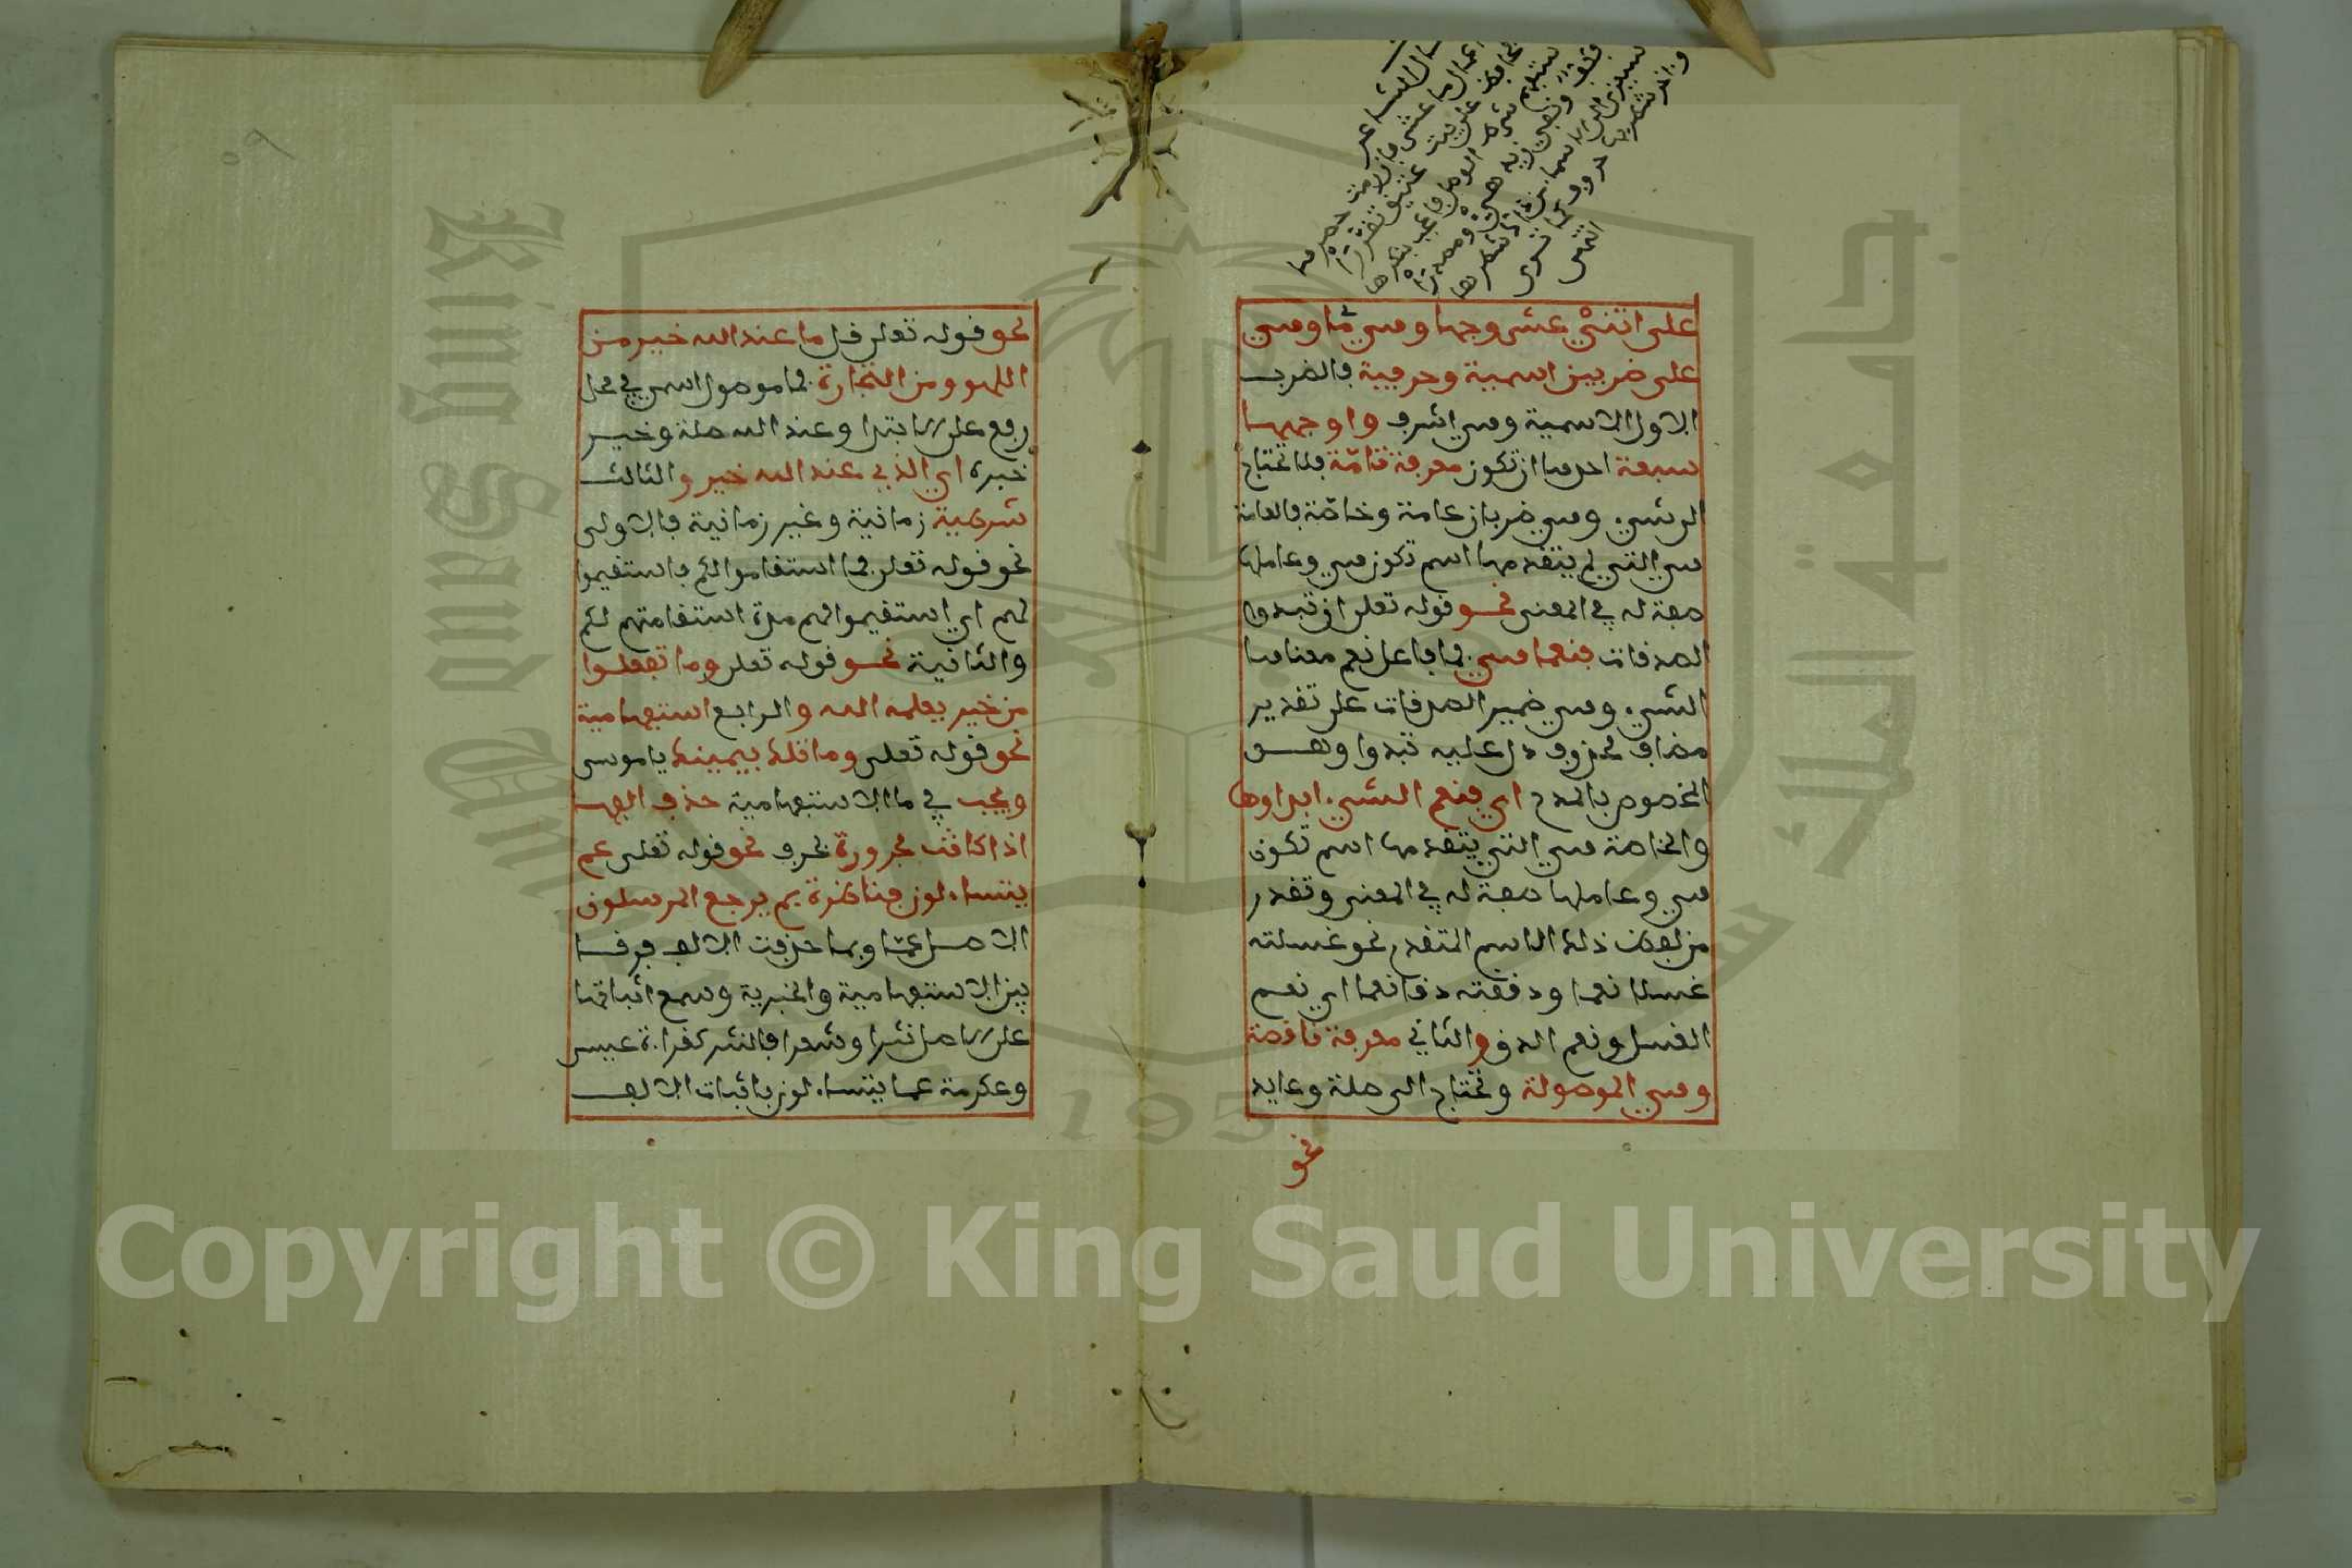 على اثنتي عشر وجها وهي ما وهي
على ضربين اسمية وحرفية فالضرب
الاول الاسمية وهي اشرف واوجهها
سبعة احدها ان تكون معرفة تامّة فلا تحتاج
الى شيء وهي ضربان عامة وخاصّة فالعامة
هي التي لم يتقدمها اسم تكون هي وعاملها
صفة له في المعنى نحو قوله تعلى ان تبدوا
الصدقات فنعما هي فما فاعل نعم معناها
الشيء وهي ضمير الصدقات على تقدير
مضاف محذوف دل عليه تبدوا وهو
المخصوص بالمدح اي فنعم الشيء ابداوها
والخاصة هي التي يتقدمها اسم تكون
هي وعاملها صفة له في المعنى وتقدر
من لفظ ذلك الاسم المتقدم نحو غسلته
غسلا نعما ودققته دقا نعما اي نعم
الغسل ونعم الدق والثاني معرفة ناقصة
وهي الموصولة وتحتاج الى صلة وعايد
نحو
نحو قوله تعلى قل ما عند الله خير من
اللهو ومن التجارة فما موصول اسمي في محل
رفع على الابتدا وعند الله صلة وخير
خبره اي الذي عند الله خير والثالث
شرطية زمانية وغير زمانية فالاولى
نحو قوله تعلى فما استقاموا لكم فاستقيموا
لهم اي استقيموا لهم مدة استقامتهم لكم
والثانية نحو قوله تعلى وما تفعلوا
من خير يعلمه الله والرابع استفهامية
نحو قوله تعلى وما تلك بيمينك ياموسى
ويجب في ما الاستفهامية حذف الفها
اذا كانت مجرورة بحرف نحو قوله تعلى عم
يتساءلون فناظرة بم يرجع المرسلون
الاصل عمّا وبما حذفت الالف فرقا
بين الاستفهامية والخبرية وسمع اثباتها
على الاصل نثرا وشعرا فالنثر كقراءة عيسى
وعكرمة عما يتساءلون باثبات الالف
King Saud University
جامعة الملك سعود
1957
Copyright © King Saud University